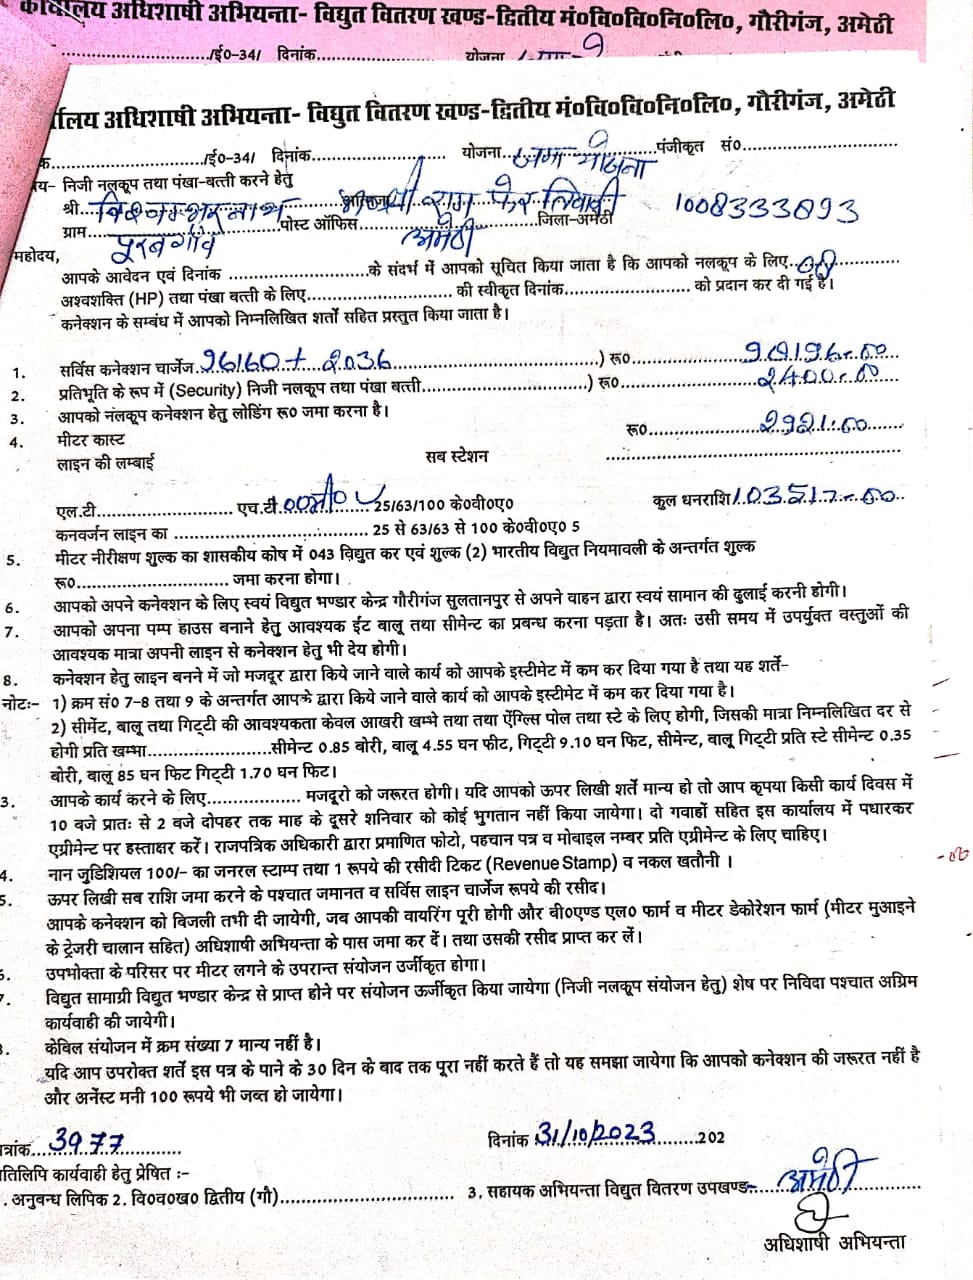 कार्यालय अधिशाषी अभियन्ता- विद्युत वितरण खण्ड-द्वितीय मं०वि०वि०नि०लि०, गौरीगंज, अमेठी
/ई०-34/ दिनांक.................... योजना
र्यालय अधिशाषी अभियन्ता- विद्युत वितरण खण्ड-द्वितीय मं०वि०वि०नि०लि०, गौरीगंज, अमेठी
क............................/ई०-34/ दिनांक........................ योजना.... जमा योजना पंजीकृत सं०............................
य- निजी नलकूप तथा पंखा-बत्ती करने हेतु
श्री.. विश्वम्भर नाथ श्री राम फेर तिवारी 1008333893
ग्राम.. पूरबगाँव पोस्ट ऑफिस.. अमेठी जिला-अमेठी
महोदय,
आपके आवेदन एवं दिनांक .........................के संदर्भ में आपको सूचित किया जाता है कि आपको नलकूप के लिए..
अश्वशक्ति (HP) तथा पंखा बत्ती के लिए........................... की स्वीकृत दिनांक....................... को प्रदान कर दी गई है।
कनेक्शन के सम्बंध में आपको निम्नलिखित शर्तो सहित प्रस्तुत किया जाता है।
1. सर्विस कनेक्शन चार्जेज 96160 + 2036 ) रू० 98196-00
2. प्रतिभूति के रूप में (Security) निजी नलकूप तथा पंखा बत्ती..............................) रू० 2400-00
3. आपको नलकूप कनेक्शन हेतु लोडिंग रू० जमा करना है।
4. मीटर कास्ट रू० 2921.00
लाइन की लम्बाई सब स्टेशन ......................................................
एल.टी......................... एच.टी. 25/63/100 के०वी०ए० कुल धनराशि 103517-00
कनवर्जन लाइन का .................................... 25 से 63/63 से 100 के०वी०ए० 5
5. मीटर नीरीक्षण शुल्क का शासकीय कोष में 043 विद्युत कर एवं शुल्क (2) भारतीय विद्युत नियमावली के अन्तर्गत शुल्क
रू०............................ जमा करना होगा।
6. आपको अपने कनेक्शन के लिए स्वयं विद्युत भण्डार केन्द्र गौरीगंज सुलतानपुर से अपने वाहन द्वारा स्वयं सामान की ढुलाई करनी होगी।
7. आपको अपना पम्प हाउस बनाने हेतु आवश्यक ईंट बालू तथा सीमेन्ट का प्रबन्ध करना पड़ता है। अतः उसी समय में उपर्युक्त वस्तुओं की
आवश्यक मात्रा अपनी लाइन से कनेक्शन हेतु भी देय होगी।
8. कनेक्शन हेतु लाइन बनने में जो मजदूर द्वारा किये जाने वाले कार्य को आपके इस्टीमेट में कम कर दिया गया है तथा यह शर्ते-
नोटः- 1) क्रम सं० 7-8 तथा 9 के अन्तर्गत आपके द्वारा किये जाने वाले कार्य को आपके इस्टीमेट में कम कर दिया गया है।
2) सीमेंट, बालू तथा गिट्टी की आवश्यकता केवल आखरी खम्भे तथा तथा ऐंग्लिस पोल तथा स्टे के लिए होगी, जिसकी मात्रा निम्नलिखित दर से
होगी प्रति खम्भा........................सीमेन्ट 0.85 बोरी, बालू 4.55 घन फीट, गिट्टी 9.10 घन फिट, सीमेन्ट, बालू गिट्टी प्रति स्टे सीमेन्ट 0.35
बोरी, बालू 85 घन फिट गिट्टी 1.70 घन फिट।
3. आपके कार्य करने के लिए.................. मजदूरो को जरूरत होगी। यदि आपको ऊपर लिखी शर्ते मान्य हो तो आप कृपया किसी कार्य दिवस में
10 बजे प्रातः से 2 बजे दोपहर तक माह के दूसरे शनिवार को कोई भुगतान नहीं किया जायेगा। दो गवाहों सहित इस कार्यालय में पधारकर
एग्रीमेन्ट पर हस्ताक्षर करें। राजपत्रिक अधिकारी द्वारा प्रमाणित फोटो, पहचान पत्र व मोबाइल नम्बर प्रति एग्रीमेन्ट के लिए चाहिए।
4. नान जुडिशियल 100/- का जनरल स्टाम्प तथा 1 रूपये की रसीदी टिकट (Revenue Stamp) व नकल खतौनी ।
5. ऊपर लिखी सब राशि जमा करने के पश्चात जमानत व सर्विस लाइन चार्जेज रूपये की रसीद।
आपके कनेक्शन को बिजली तभी दी जायेगी, जब आपकी वायरिंग पूरी होगी और बी०एण्ड एल० फार्म व मीटर डेकोरेशन फार्म (मीटर मुआइने
के ट्रेजरी चालान सहित) अधिशाषी अभियन्ता के पास जमा कर दें। तथा उसकी रसीद प्राप्त कर लें।
6. उपभोक्ता के परिसर पर मीटर लगने के उपरान्त संयोजन उर्जीकृत होगा।
7. विद्युत सामाग्री विद्युत भण्डार केन्द्र से प्राप्त होने पर संयोजन ऊर्जीकृत किया जायेगा (निजी नलकूप संयोजन हेतु) शेष पर निविदा पश्चात अग्रिम
कार्यवाही की जायेगी।
केबिल संयोजन में क्रम संख्या 7 मान्य नहीं है।
यदि आप उपरोक्त शर्ते इस पत्र के पाने के 30 दिन के बाद तक पूरा नहीं करते हैं तो यह समझा जायेगा कि आपको कनेक्शन की जरूरत नहीं है
और अर्नेस्ट मनी 100 रूपये भी जब्त हो जायेगा।
त्रांक.. 3977 दिनांक 31/10/2023 ........202
तिलिपि कार्यवाही हेतु प्रेषित :-
. अनुबन्ध लिपिक 2. वि०व०ख० द्वितीय (गौ)............................... 3. सहायक अभियन्ता विद्युत वितरण उपखण्ड-.. अमेठी
अधिशाषी अभियन्ता